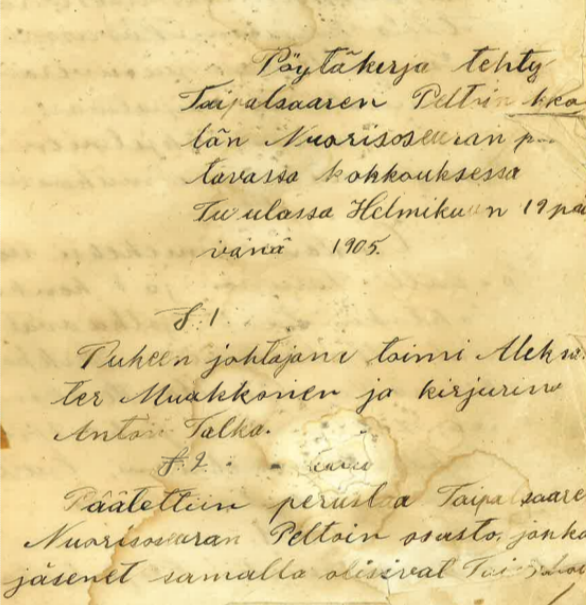 Pöytäkirja tehty
Taipalsaaren Peltoin kko
län Nuorisoseuran
tavassa kokkouksessa
Helmikuun 19 päi
vänä 1905.
§.1.
Puheen johtajana toimi Aleksa
ter Muukkonen ja kirjurina
Anton Talka.
§.2.
Päätettiin perustaa Taipalsaare
Nuorisoseuran Peltoin osasto, jonka
jäsenet samalla olisivat